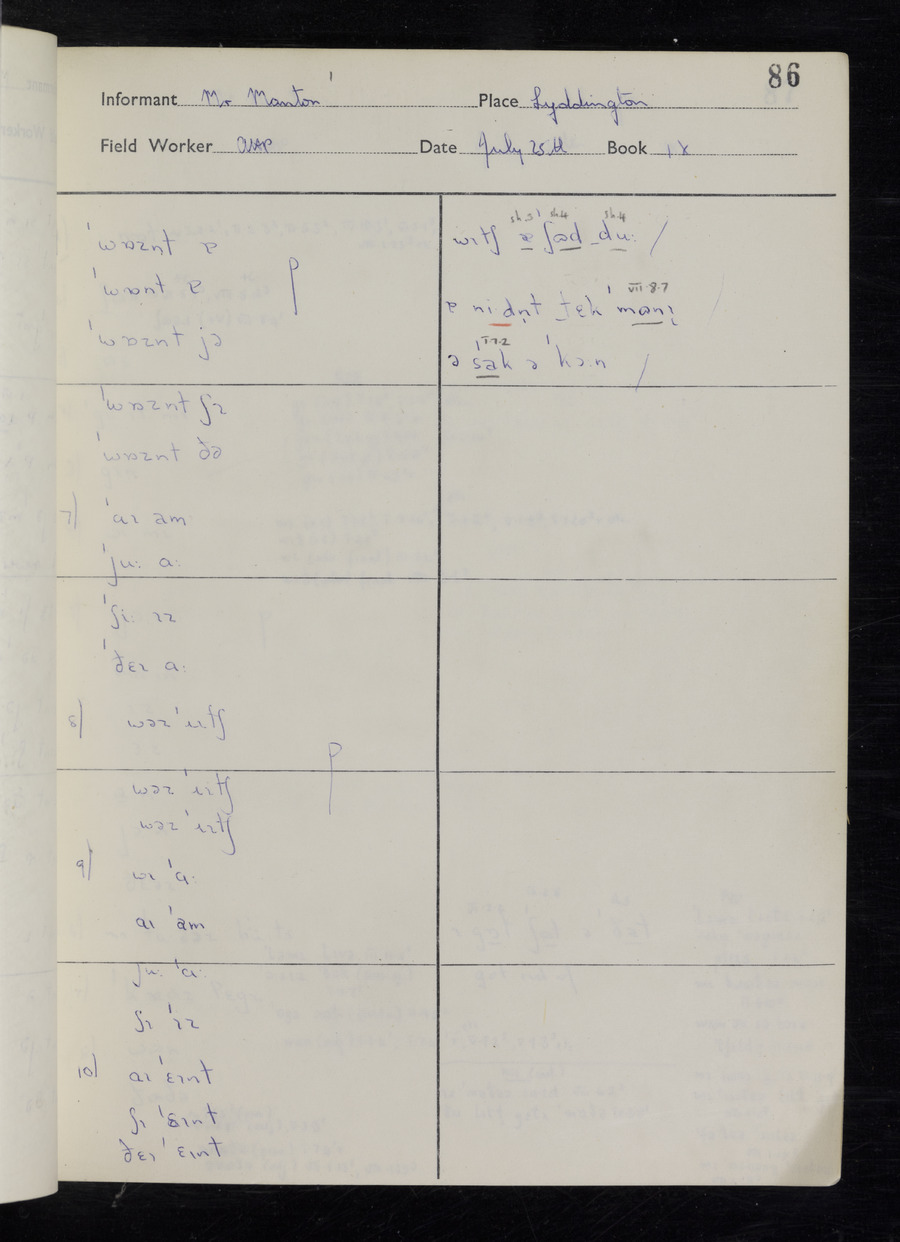 86
Informant Mr Manton Place Lyddington
Field Worker Date July 25th Book IX
ˈwɒznt ɐ
ˈwɒnt ɐ
ˈwɒznt jə
ˈwɒznt ʃɪ
ˈwɒznt ðə
7) ˈaɪ am
ˈjuː aː
ˈʃiː ɪz
ˈðeɪ aː
8) wəz ˈɪtʃ
wəz ˈɪtʃ
wəz ˈɪtʃ
9) wɪ ˈaː
aɪ ˈam
juː ˈaː
ʃɪ ˈɪz
10) aɪ ˈɛɪnt
ʃɪ ˈɛɪnt
ðeɪ ˈɛɪnt
sh.4 sh.4
wɪtʃ ɐ ʃəd duː /
VII·8·7
ɐ nidn̩t tɛk ˈmanɪ
ə ˈsak ə ˈkɔːn /